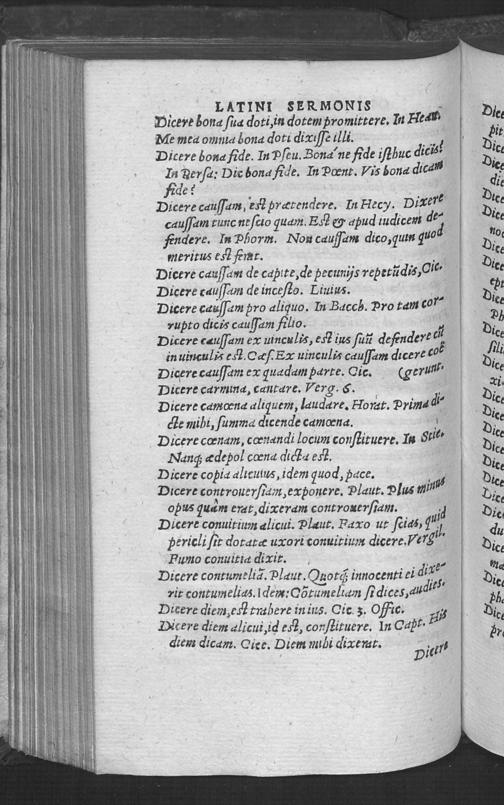 LATINI SERMONIS
Dicere bona sua doti, in dotem promittere. In Heau.
Me mea omnia bona doti dixisse illi.
Dicere bona fide. In Pseu. Bona'ne fide isthuc dicis?
In Persa: Dic bona fide. In Pœnt. Vis bona dicam
fide?
Dicere caussam, est prætendere. In Hecy. Dixere
caussam tunc nescio quam. Est & apud iudicem de-
fendere. In Phorm. Non caussam dico, quin quod
meritus est ferat.
Dicere caussam de capite, de pecunijs repetūdis, Cic.
Dicere caussam de incesto. Liuius.
Dicere caussam pro aliquo. In Bacch. Pro tam cor-
rupto dicis caussam filio.
Dicere caussam ex uinculis, est ius suū defendere cū
in uinculis est. Cæs. Ex uinculis caussam dicere coë
Dicere caussam ex quadam parte. Cic. (gerunt.
Dicere carmina, cantare. Verg. 6.
Dicere camœna aliquem, laudare. Horat. Prima di-
cte mihi, summa dicende camœna.
Dicere cœnam, cœnandi locum constituere. In Stic.
Nanq; ædepol cœna dicta est.
Dicere copia alicuius, idem quod, pace.
Dicere controuersiam, exponere. Plaut. Plus minus
opus quàm erat, dixeram controuersiam.
Dicere conuitium alicui. Plaut. Faxo ut scias, quid
pericli sit dotatæ uxori conuitium dicere. Vergil.
Fumo conuitia dixit.
Dicere contumeliā. Plaut. Quotq; innocenti ei dixe-
rit contumelias. Idem: Cōtumeliam si dices, audies.
Dicere diem, est trahere in ius. Cic. 3. Offic.
Dicere diem alicui, id est, constituere. In Capt. His
diem dicam. Cice. Diem mihi dixerat.
Dicere